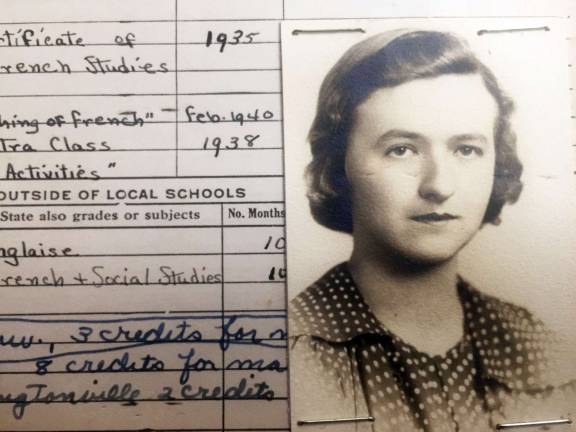 tificate of 1935
rench Studies
hing of french" Feb. 1940
tra Class 1938
Activities"
OUTSIDE OF LOCAL SCHOOLS
State also grades or subjects No. Months
nglaise 10
rench + Social Studies 10
3 credits for m
8 credits for ma
ngtonville 2 credits